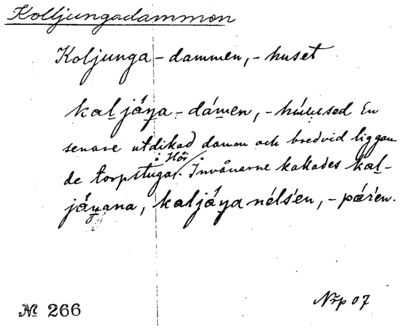 Kolljungadammen
Koljunga-dammen, -huset
kaljáŋa-dámen, -húused En
senare utdikad damm och bredvid liggan
i Hör
de torpstuga. Invånarne kakades kal-
jáŋana, kaljáŋa nélsen, -pǽren.
№ 266
Nrp 07